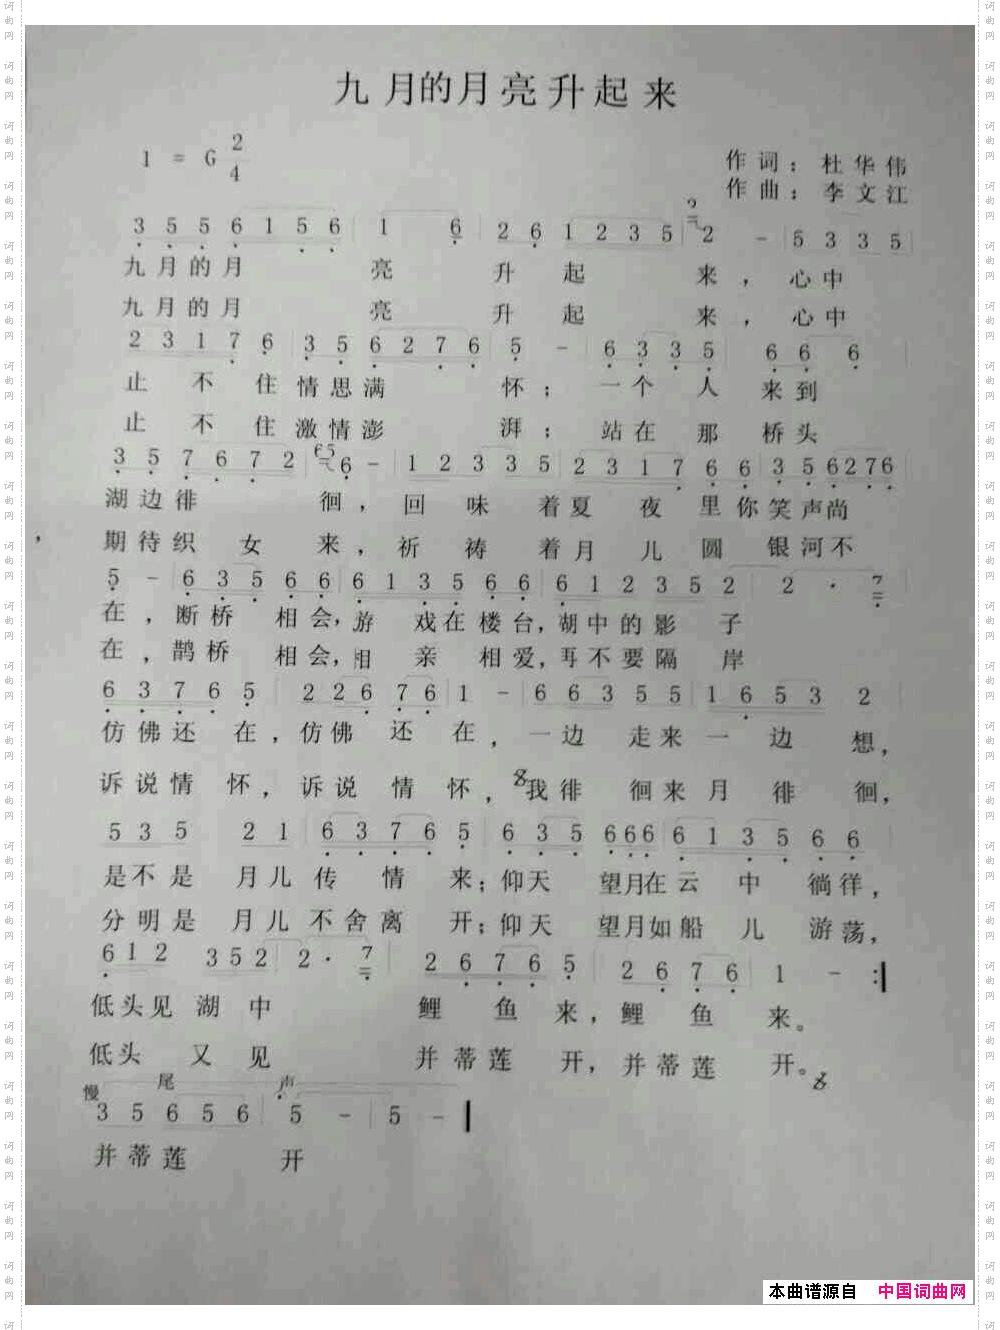 九月的月亮升起来
1 = G 2/4
作词：杜华伟
作曲：李文江
3 5 5 6 1 5 6 1 6 2 6 1 2 3 5 2 - 5 3 3 5
九月的月 亮 升 起 来，心中
九月的月 亮 升 起 来，心中
2 3 1 7 6 3 5 6 2 7 6 5 - 6 3 3 5 6 6 6
止 不 住情思满 怀；一个 人 来到
止 不 住激情澎 湃；站在 那 桥头
3 5 7 6 7 2 65 6 - 1 2 3 3 5 2 3 1 7 6 6 3 5 6 2 7 6
湖边徘 徊，回 味 着夏 夜 里你笑声尚
期待织 女 来，祈 祷 着月 儿 圆 银河不
5 - 6 3 5 6 6 6 1 3 5 6 6 6 1 2 3 5 2 2 · 7
在，断桥 相会，游 戏在楼台，湖中的影 子
在，鹊桥 相会，相 亲 相爱，再不要隔 岸
6 3 7 6 5 2 2 6 7 6 1 - 6 6 3 5 5 1 6 5 3 2
仿佛还 在，仿佛 还 在，一边 走来一 边 想，
诉说情 怀，诉说 情 怀，8我徘 徊来月 徘 徊，
5 3 5 2 1 6 3 7 6 5 6 3 5 6 6 6 6 1 3 5 6 6
是不是 月儿传 情 来；仰天 望月在云 中 徜徉，
分明是 月儿不舍离 开；仰天 望月如船 儿 游荡，
6 1 2 3 5 2 2 · 7 2 6 7 6 5 2 6 7 6 1 - :
低头见 湖 中 鲤 鱼 来，鲤 鱼 来。
低头 又 见 并蒂莲 开，并蒂莲 开。8
慢 尾 声
3 5 6 5 6 5 - 5 -
并蒂莲 开
本曲谱源自 中国词曲网